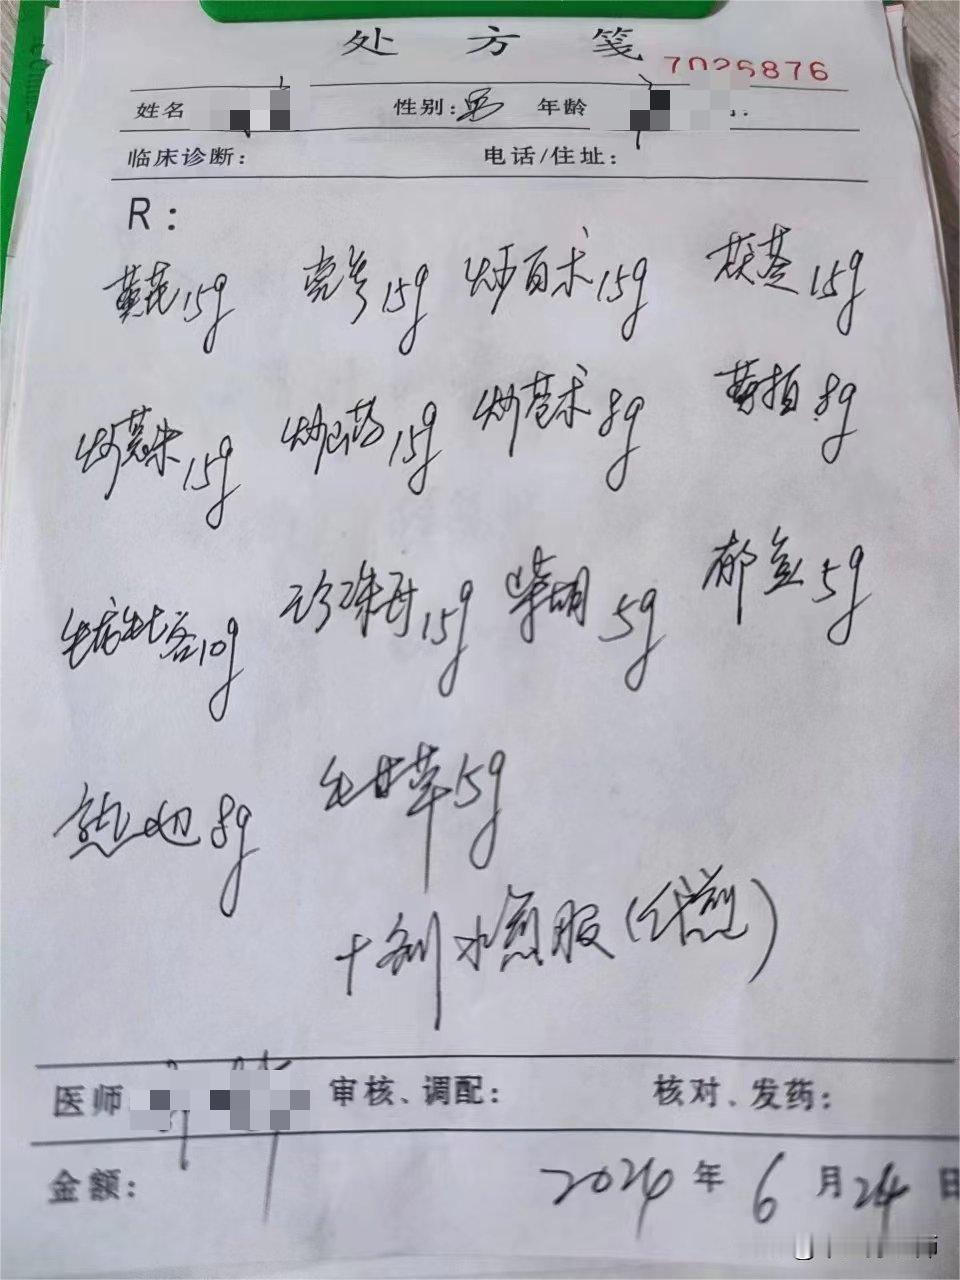 处方笺
7026876
姓名 性别:男 年龄
临床诊断: 电话/住址:
R:
黄芪15g 党参15g 炒白术15g 茯苓15g
炒薏米15g 炒山药15g 炒苍术8g 黄柏8g
15g 柴胡5g 郁金5g
珍珠母 10g
熟地8g 生甘草5g
十剂水煎服(代煎)
医师 审核、调配: 核对、发药:
金额: 2024年6月24日